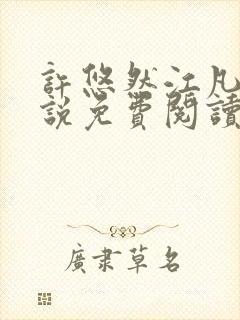 許悠然江凡
説免費閱讀
廣隶草名